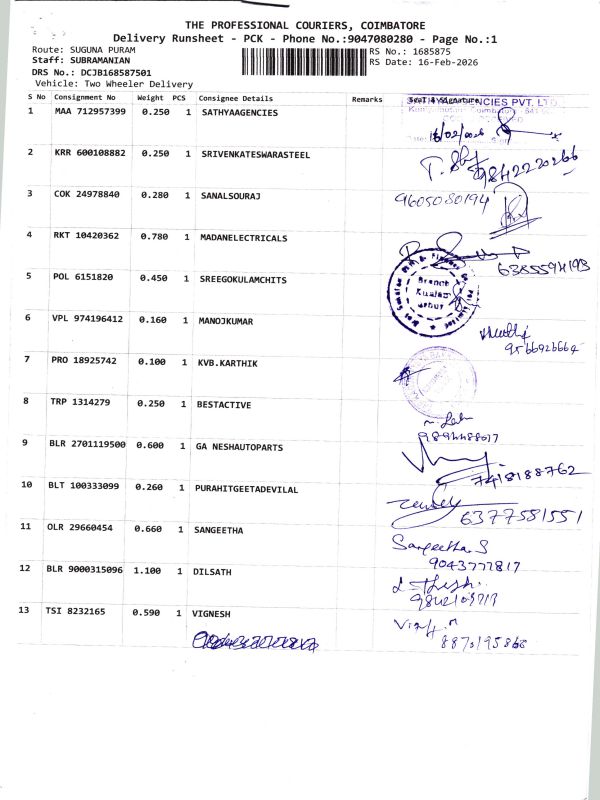 THE PROFESSIONAL COURIERS, COIMBATORE
Delivery Runsheet - PCK - Phone No.:9047080280 - Page No.:1
Route: SUGUNA PURAM
RS No.: 1685875
Staff: SUBRAMANIAN
RS Date: 16-Feb-2026
DRS No.: DCJB168587501
Vehicle: Two Wheeler Delivery
S No Consignment No Weight PCS Consignee Details Remarks Seal & Signature
1 MAA 712957399 0.250 1 SATHYAAGENCIES
16/02/2026
2 KRR 600108882 0.250 1 SRIVENKATESWARASTEEL
9842220266
3 COK 24978840 0.280 1 SANALSOURAJ 9605080194
4 RKT 10420362 0.780 1 MADANELECTRICALS
6385594193
5 POL 6151820 0.450 1 SREEGOKULAMCHITS
Branch
6 VPL 974196412 0.160 1 MANOJKUMAR
9566926664
7 PRO 18925742 0.100 1 KVB.KARTHIK
8 TRP 1314279 0.250 1 BESTACTIVE
9 BLR 2701119500 0.600 1 GA NESHAUTOPARTS
7418188762
10 BLT 100333099 0.260 1 PURAHITGEETADEVILAL
6377581551
11 OLR 29660454 0.660 1 SANGEETHA
Sangeetha S
9043777817
12 BLR 9000315096 1.100 1 DILSATH
13 TSI 8232165 0.590 1 VIGNESH